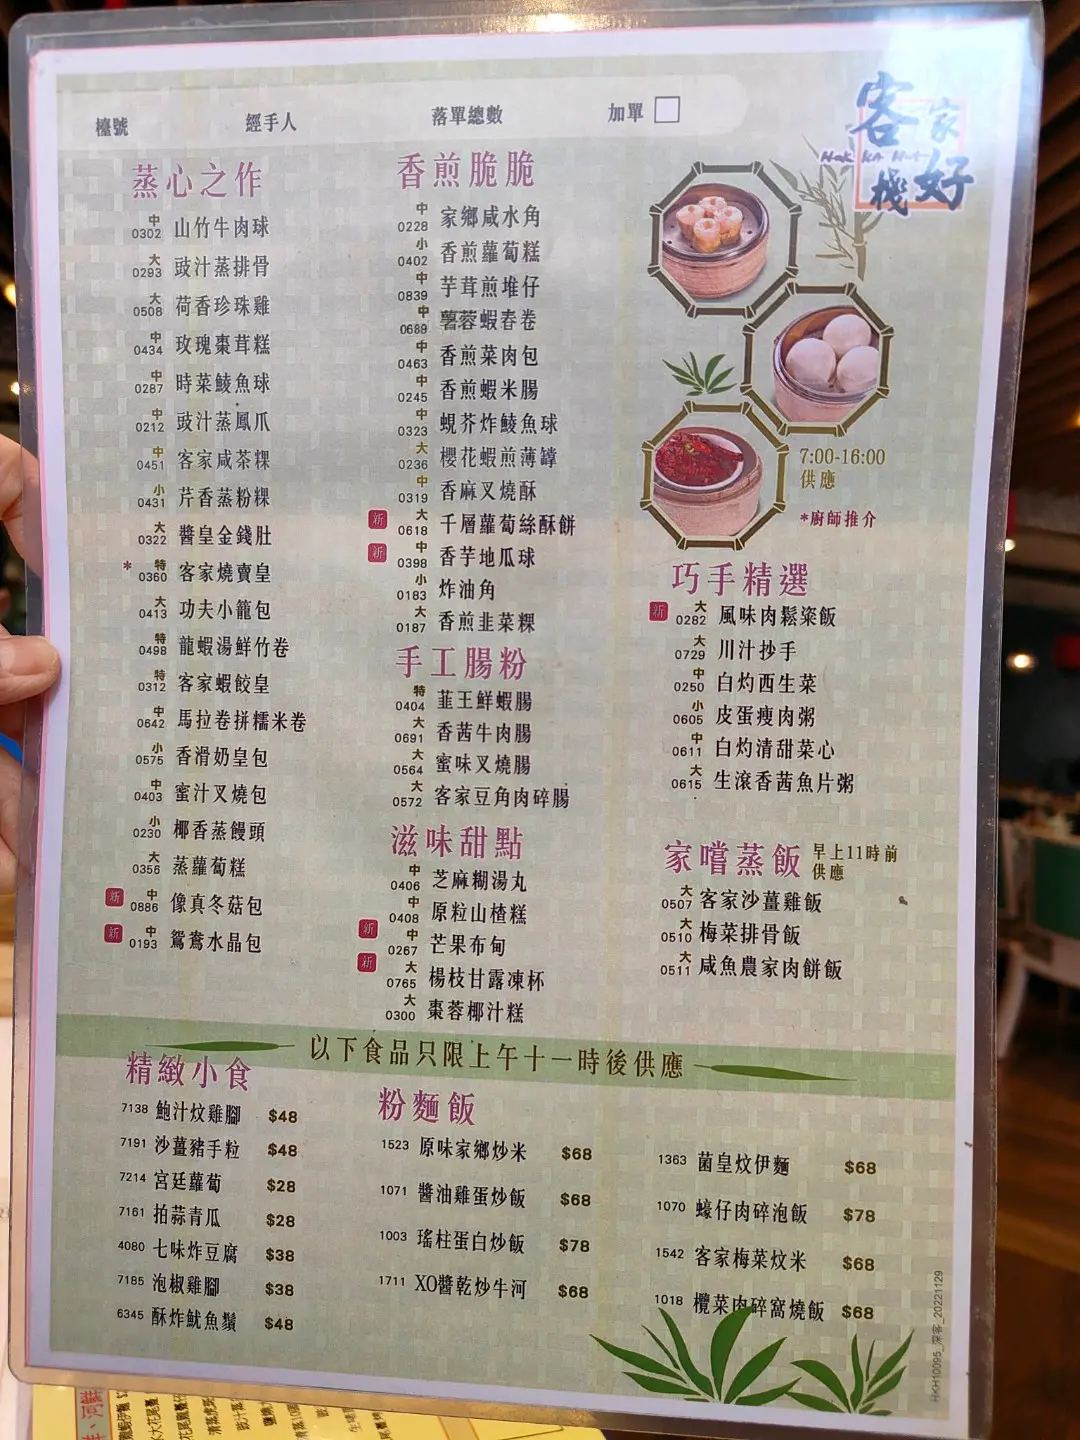 檯號 經手人 落單總數 加單
客家好棧
Hak Ka Hut
蒸心之作
中 0302 山竹牛肉球
大 0293 豉汁蒸排骨
大 0508 荷香珍珠雞
中 0434 玫瑰棗茸糕
中 0287 時菜鯪魚球
中 0212 豉汁蒸鳳爪
中 0451 客家咸茶粿
小 0431 芹香蒸粉粿
大 0322 醬皇金錢肚
* 特 0360 客家燒賣皇
大 0413 功夫小籠包
特 0498 龍蝦湯鮮竹卷
特 0312 客家蝦餃皇
中 0642 馬拉卷拼糯米卷
小 0575 香滑奶皇包
中 0403 蜜汁叉燒包
小 0230 椰香蒸饅頭
大 0356 蒸蘿蔔糕
新 中 0886 像真冬菇包
新 中 0193 鴛鴦水晶包
香煎脆脆
中 0228 家鄉咸水角
小 0402 香煎蘿蔔糕
中 0839 芋茸煎堆仔
中 0689 薯蓉蝦春卷
中 0463 香煎菜肉包
中 0245 香煎蝦米腸
中 0323 蜆芥炸鯪魚球
大 0236 櫻花蝦煎薄罉
中 0319 香麻叉燒酥
新 大 0618 千層蘿蔔絲酥餅
新 中 0398 香芋地瓜球
小 0183 炸油角
大 0187 香煎韭菜粿
手工腸粉
特 0404 韮王鮮蝦腸
大 0691 香茜牛肉腸
大 0564 蜜味叉燒腸
大 0572 客家豆角肉碎腸
滋味甜點
中 0406 芝麻糊湯丸
中 0408 原粒山楂糕
新 中 0267 芒果布甸
新 大 0765 楊枝甘露凍杯
大 0300 棗蓉椰汁糕
7:00-16:00
供應
*廚師推介
巧手精選
新 大 0282 風味肉鬆粢飯
大 0729 川汁抄手
中 0250 白灼西生菜
小 0605 皮蛋瘦肉粥
中 0611 白灼清甜菜心
大 0615 生滾香茜魚片粥
家嚐蒸飯 早上11時前
供應
大 0507 客家沙薑雞飯
大 0510 梅菜排骨飯
大 0511 咸魚農家肉餅飯
以下食品只限上午十一時後供應
精緻小食
7138 鮑汁炆雞腳 $48
7191 沙薑豬手粒 $48
7214 宮廷蘿蔔 $28
7161 拍蒜青瓜 $28
4080 七味炸豆腐 $38
7185 泡椒雞腳 $38
6345 酥炸魷魚鬚 $48
粉麵飯
1523 原味家鄉炒米 $68
1071 醬油雞蛋炒飯 $68
1003 瑤柱蛋白炒飯 $78
1711 XO醬乾炒牛河 $68
1363 菌皇炆伊麵 $68
1070 蠔仔肉碎泡飯 $78
1542 客家梅菜炆米 $68
1018 欖菜肉碎窩燒飯 $68
HKH10095_深客_20221129